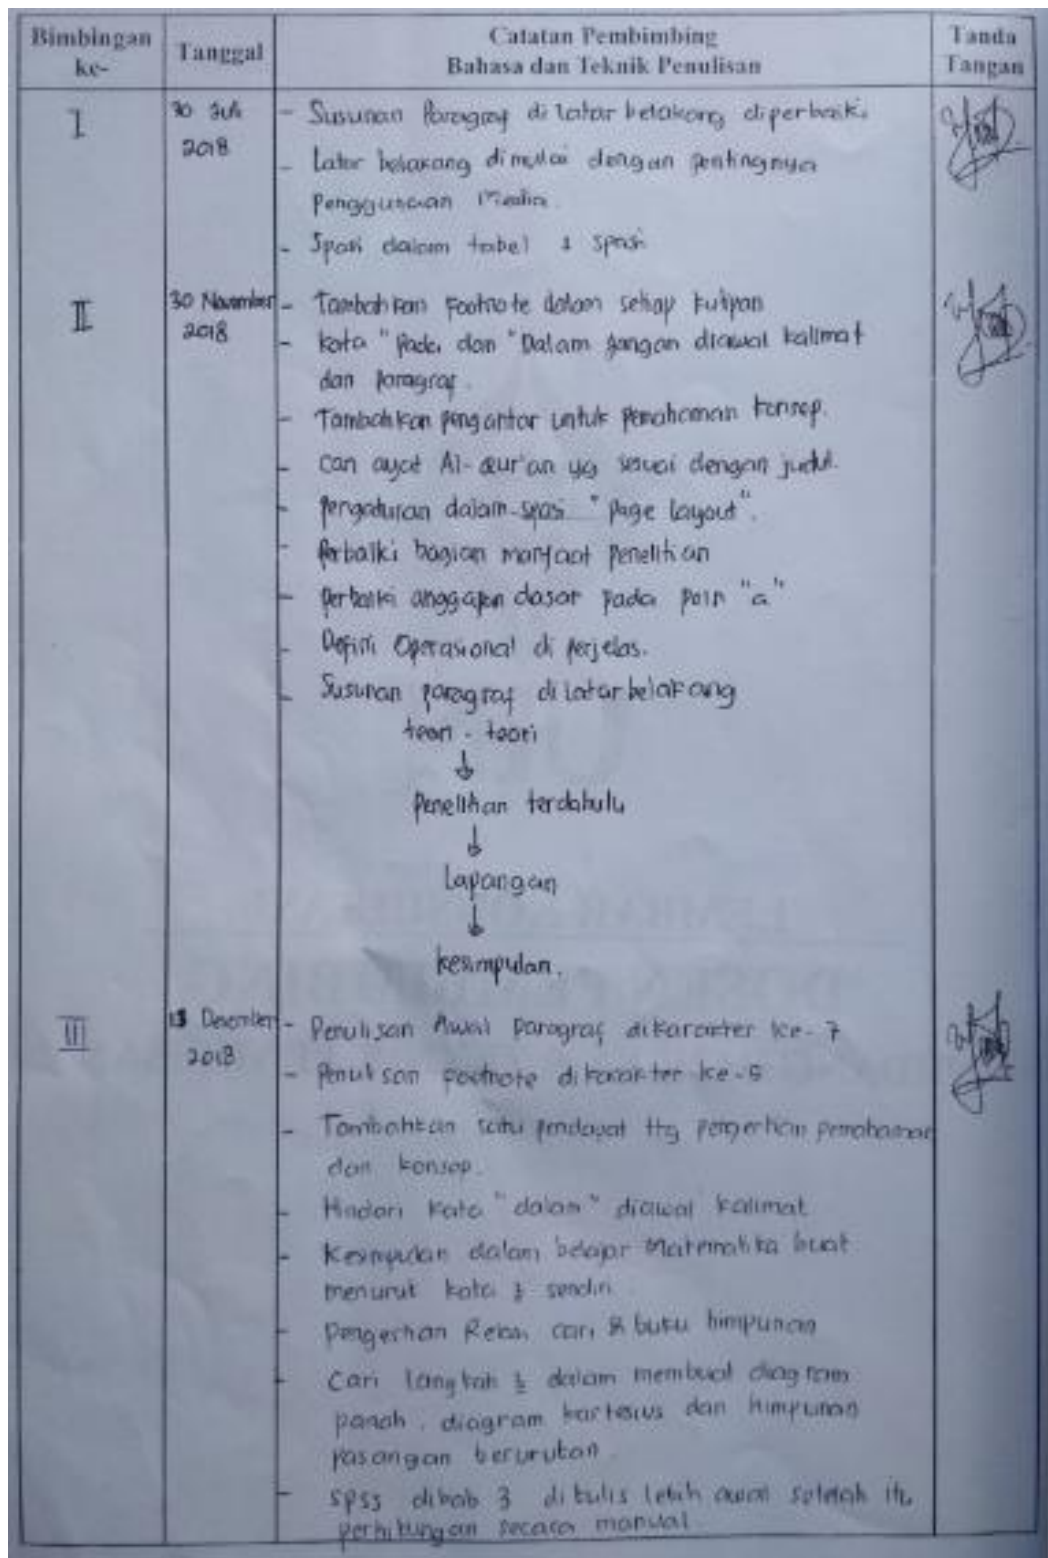 Bimbingan ke-
Tanggal
Catatan Pembimbing
Bahasa dan Teknik Penulisan
Tanda Tangan
I
30 Juli 2018
- Susunan Paragraf di latar belakang diperbaiki.
- Latar belakang dimulai dengan pentingnya
penggunaan Media.
- Spasi dalam tabel 1 spasi
II
30 November 2018
- Tambahkan footnote dalam setiap kutipan
- kata "Pada dan "Dalam jangan diawal kalimat
dan paragraf.
- Tambahkan pengantar untuk pemahaman konsep.
- Cari ayat Al-Qur'an yg sesuai dengan judul.
- Pengaturan dalam spasi "Page layout".
- Perbaiki bagian manfaat penelitian
- perbaiki anggapan dasar pada poin "a"
- Defini Operasional di perjelas.
- Susunan paragraf di latar belakang
teori - teori
↓
Penelitian terdahulu
↓
Lapangan
↓
kesimpulan.
III
Desember 2018
- Penulisan Awal paragraf dikarakter ke-7
- Penulisan footnote dikarakter ke-
- Tambahkan satu pendapat ttg pengertian pemahaman
dan konsep.
- Hindari kata "dalam" diawal kalimat
- Kesimpulan dalam belajar Matematika buat
menurut kata 2 sendiri.
- Pengertian Relasi cari buku himpunan
- Cari langkah 2 dalam membuat diagram
panah, diagram kartesius dan himpunan
pasangan berurutan.
- SPSS dibab 3 ditulis lebih awal setelah itu
perhitungan secara manual